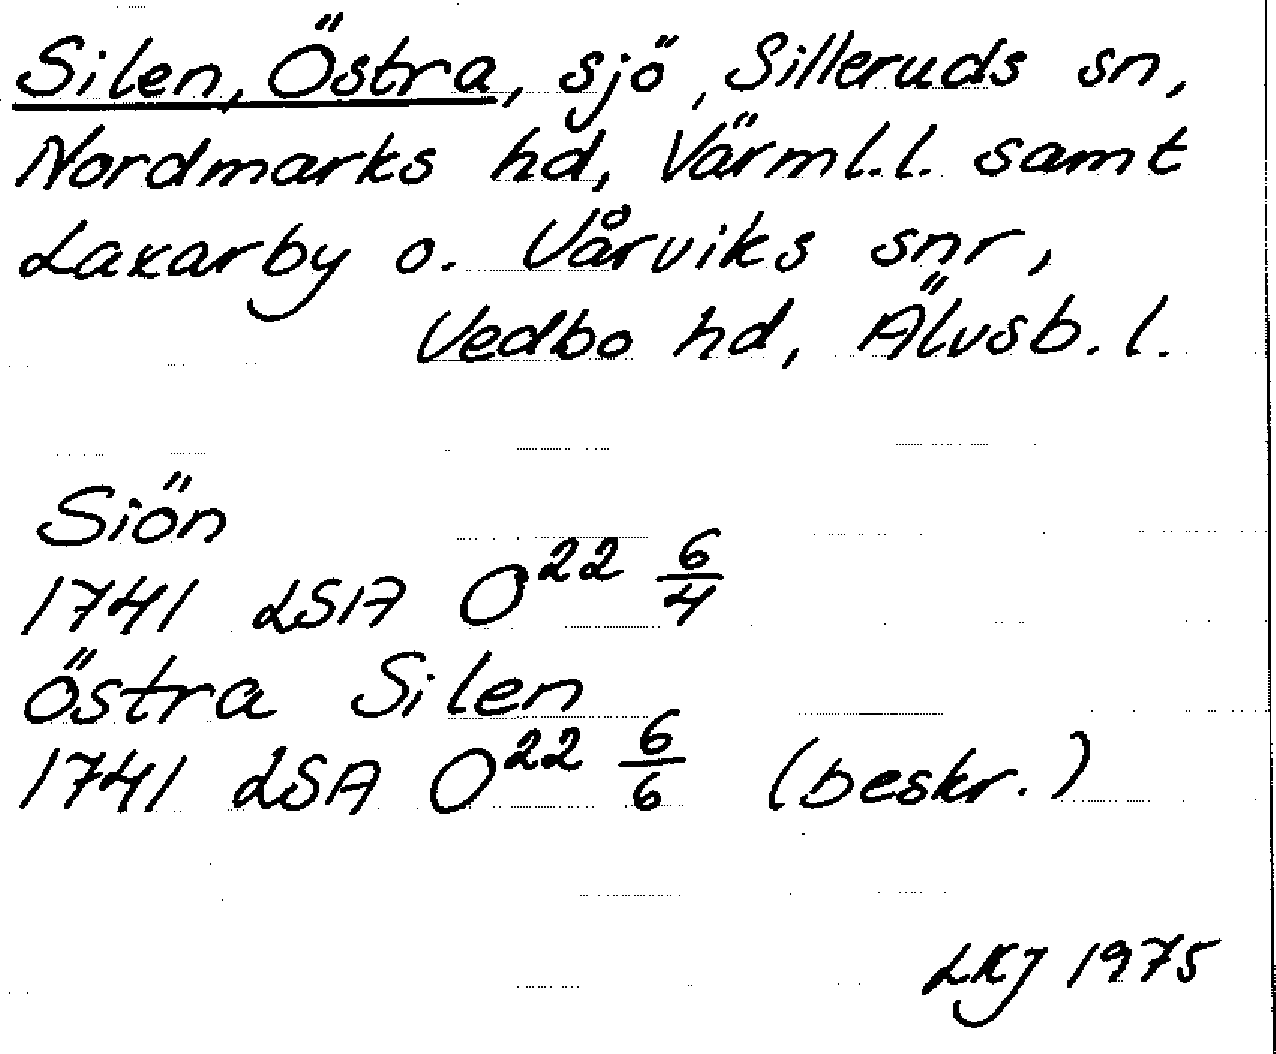 Silen, Östra, sjö, Silleruds sn,
Nordmarks hd, Värml.l. samt
Laxarby o. Vårviks snr,
Vedbo hd, Älvsb. l.
Siön
1741 LSA O²² 6/4
Östra Silen
1741 LSA O²² 6/6 (beskr.)
LKJ 1975